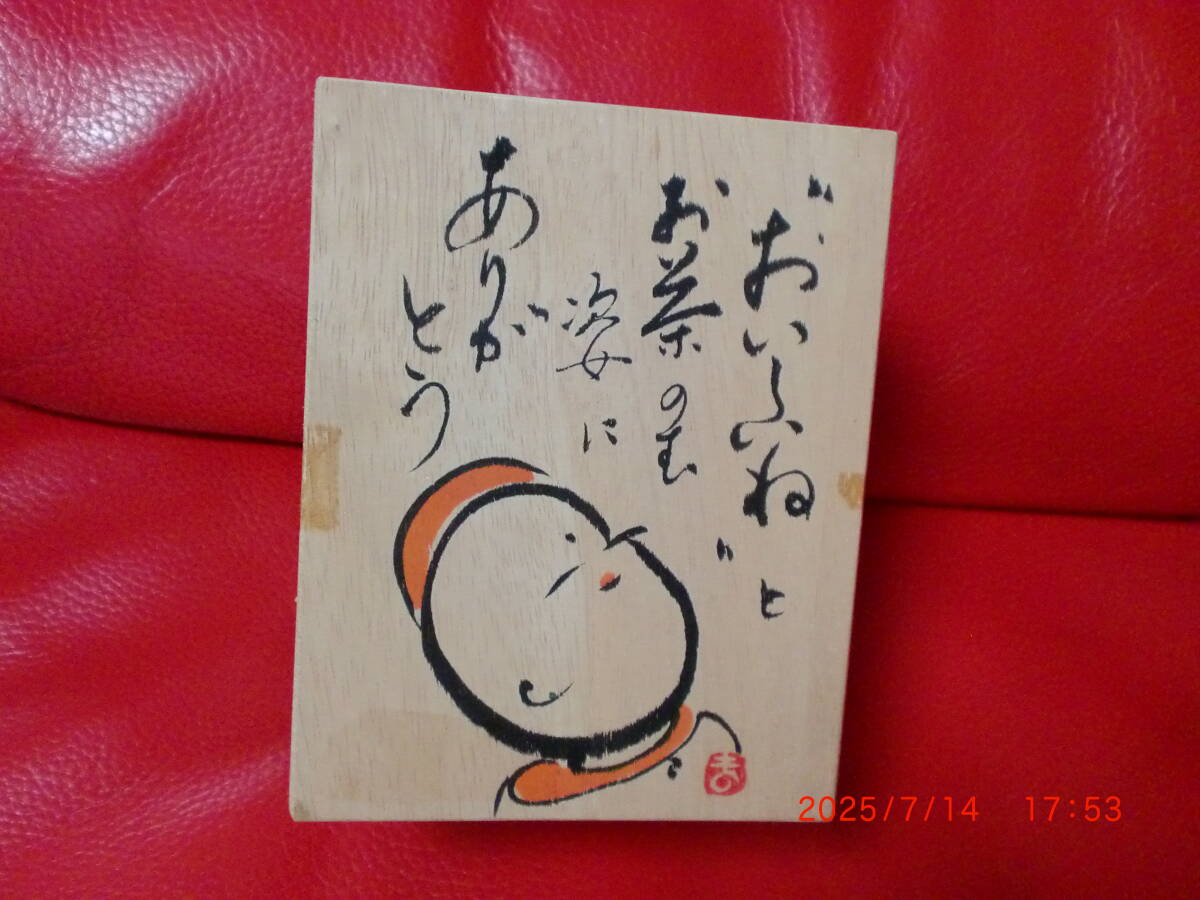 〝おいしいね〟と
お茶のむ
姿に
ありが
とう
2025/7/14 17:53